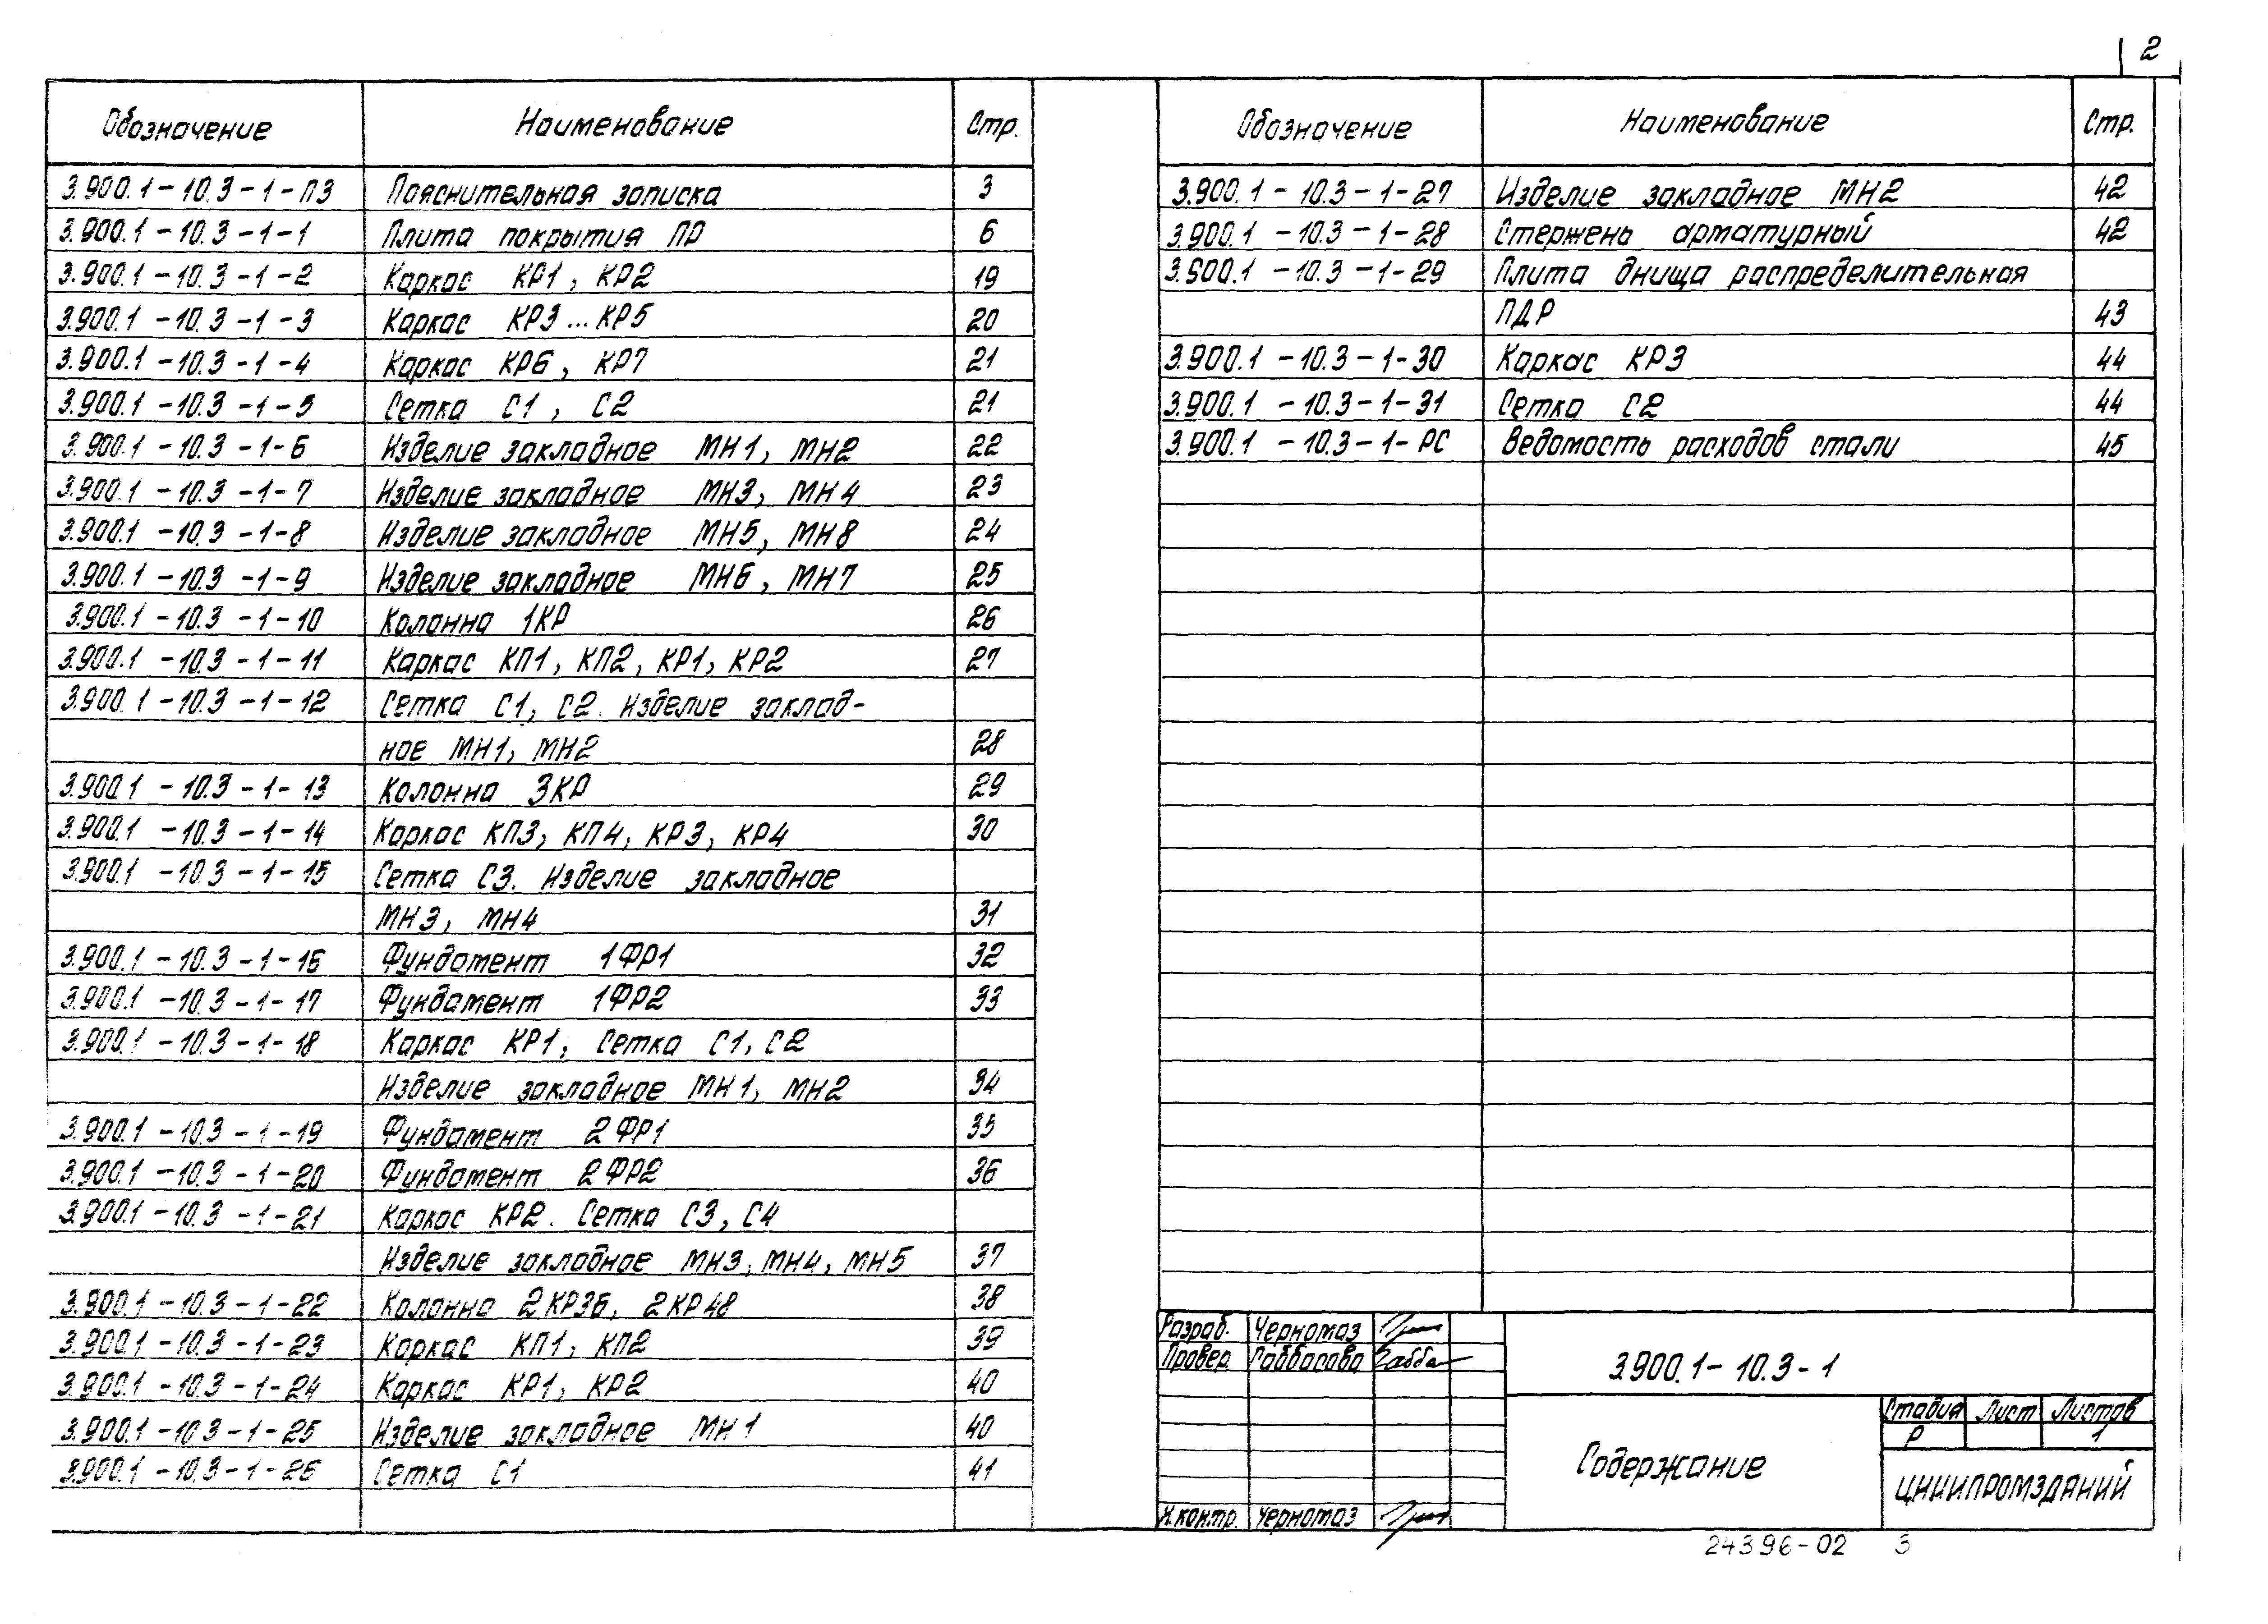 2
Обозначение Наименование Стр.
3.900.1-10.3-1-ПЗ Пояснительная записка 3
3.900.1-10.3-1-1 Плита покрытия ПР 6
3.900.1-10.3-1-2 Каркас КР1, КР2 19
3.900.1-10.3-1-3 Каркас КР3...КР5 20
3.900.1-10.3-1-4 Каркас КР6, КР7 21
3.900.1-10.3-1-5 Сетка С1, С2 21
3.900.1-10.3-1-6 Изделие закладное МН1, МН2 22
3.900.1-10.3-1-7 Изделие закладное МН3, МН4 23
3.900.1-10.3-1-8 Изделие закладное МН5, МН8 24
3.900.1-10.3-1-9 Изделие закладное МН6, МН7 25
3.900.1-10.3-1-10 Колонна 1КР 26
3.900.1-10.3-1-11 Каркас КП1, КП2, КР1, КР2 27
3.900.1-10.3-1-12 Сетка С1, С2. Изделие заклад-
ное МН1, МН2 28
3.900.1-10.3-1-13 Колонна 3КР 29
3.900.1-10.3-1-14 Каркас КП3, КП4, КР3, КР4 30
3.900.1-10.3-1-15 Сетка С3. Изделие закладное
МН3, МН4 31
3.900.1-10.3-1-16 Фундамент 1ФР1 32
3.900.1-10.3-1-17 Фундамент 1ФР2 33
3.900.1-10.3-1-18 Каркас КР1, Сетка С1, С2
Изделие закладное МН1, МН2 34
3.900.1-10.3-1-19 Фундамент 2ФР1 35
3.900.1-10.3-1-20 Фундамент 2ФР2 36
3.900.1-10.3-1-21 Каркас КР2. Сетка С3, С4
Изделие закладное МН3, МН4, МН5 37
3.900.1-10.3-1-22 Колонна 2КР36, 2КР48 38
3.900.1-10.3-1-23 Каркас КП1, КП2 39
3.900.1-10.3-1-24 Каркас КР1, КР2 40
3.900.1-10.3-1-25 Изделие закладное МН1 40
3.900.1-10.3-1-26 Сетка С1 41
Обозначение Наименование Стр.
3.900.1-10.3-1-27 Изделие закладное МН2 42
3.900.1-10.3-1-28 Стержень арматурный 42
3.900.1-10.3-1-29 Плита днища распределительная
ПДР 43
3.900.1-10.3-1-30 Каркас КР3 44
3.900.1-10.3-1-31 Сетка С2 44
3.900.1-10.3-1-РС Ведомость расходов стали 45
Разраб. Черномаз
Провер. Габбасова
Н.контр. Черномаз
3.900.1-10.3-1
Содержание
Стадия Лист Листов
Р 1
ЦНИИПРОМЗДАНИЙ
24396-02 3